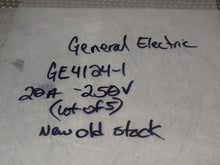 General Electric
GE4124-1
20A -250V
(Lot of 5)
New old stock